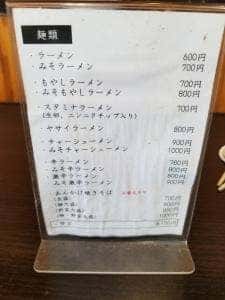 麺類
・ラーメン 600円
・みそラーメン 700円
・もやしラーメン 700円
・みそもやしラーメン 800円
・スタミナラーメン 700円
(生卵、ニンニクチップ入り)
・ヤサイラーメン 800円
・チャーシューメン 900円
・みそチャーシューメン 1000円
・辛ラーメン 760円
・みそ辛ラーメン 800円
・激辛ラーメン 800円
・みそ激辛ラーメン 900円
・あんかけ焼きそば
700円
800円
1000円